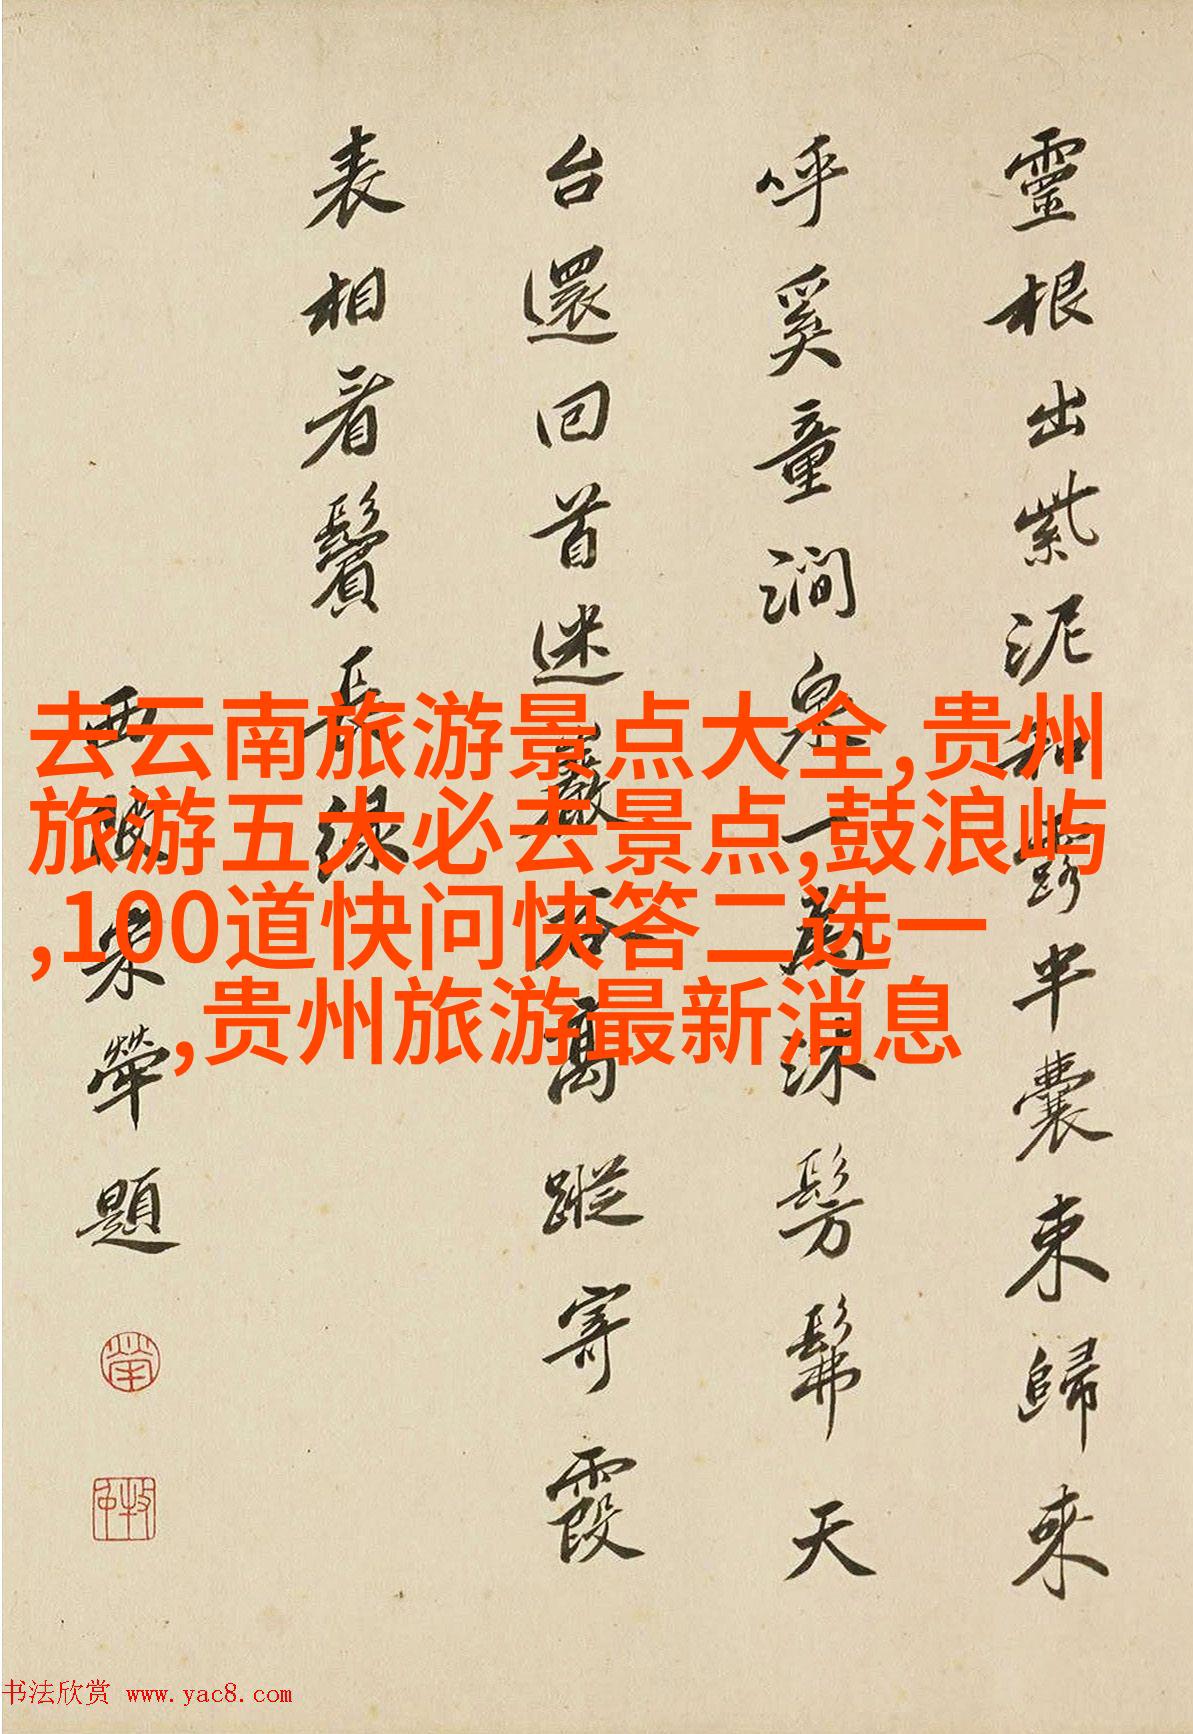 靈根出紫泥和露半囊束歸來
呼奚童澗泉一為沐髣髴天
台還回首迷巖谷高蹤寄霞
表相看鬢長緑
西陂宋犖題
去云南旅游景点大全,贵州
旅游五大必去景点,鼓浪屿
,100道快问快答二选一
,贵州旅游最新消息
书法欣赏 www.yac8.com